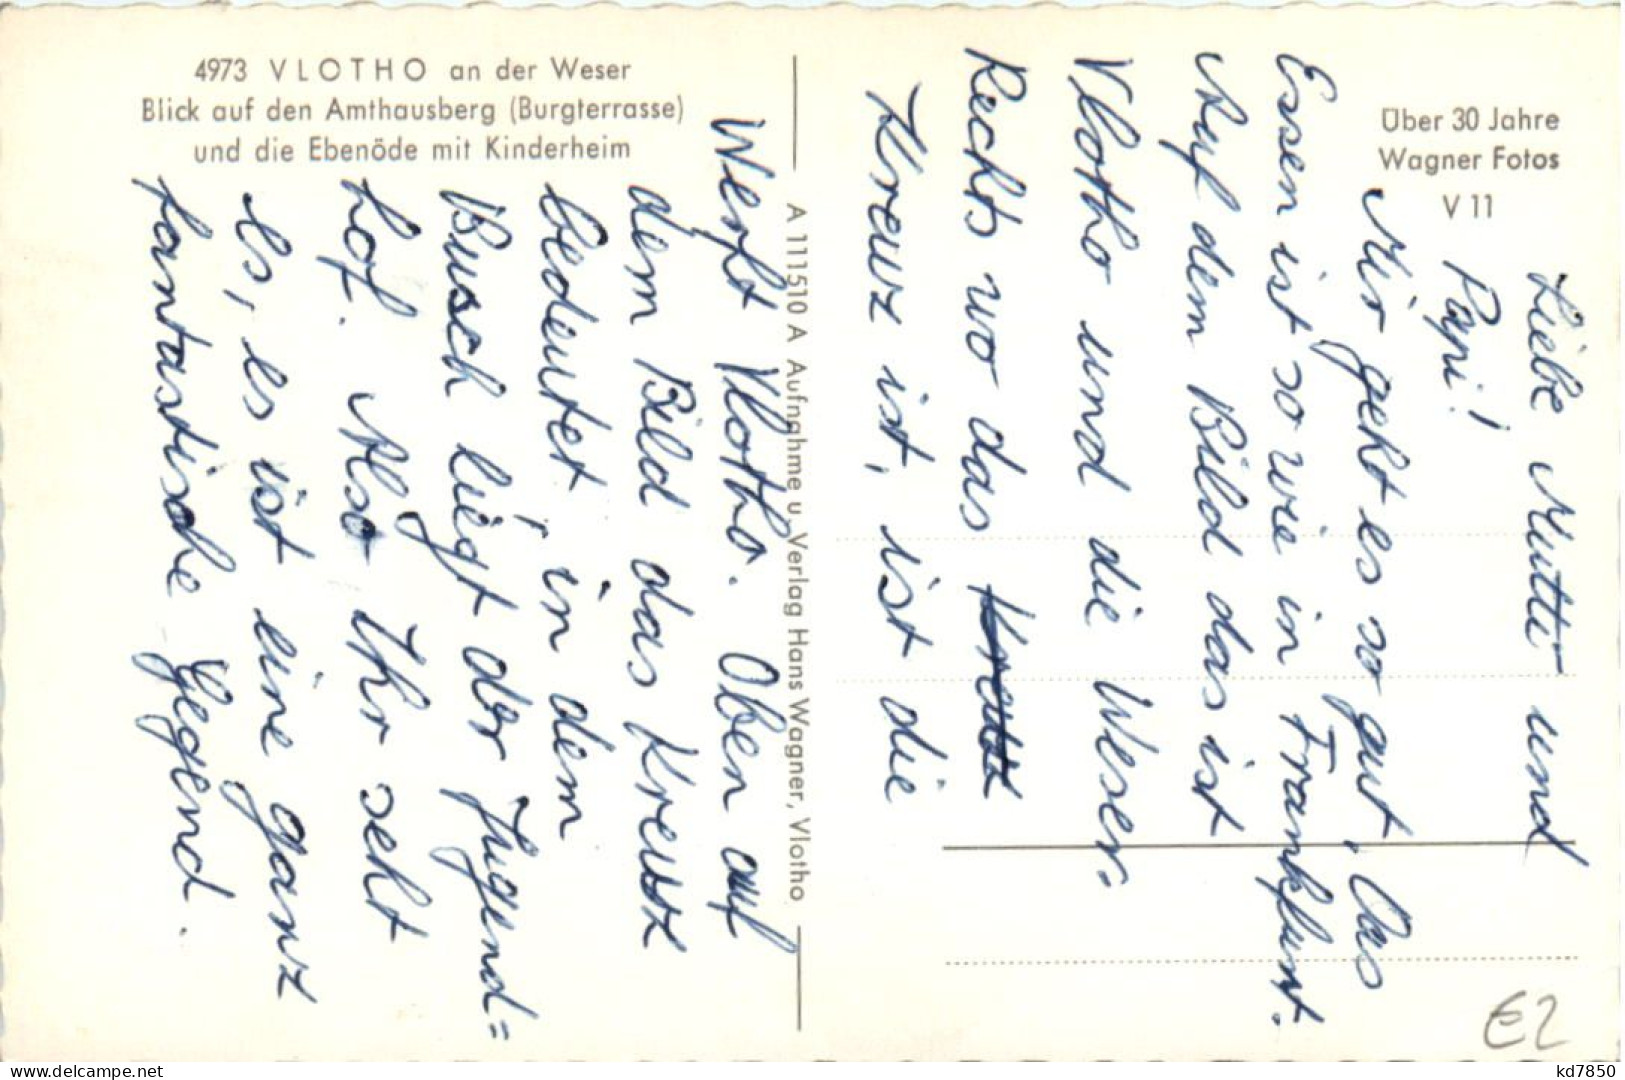 4973 VLOTHO an der Weser
Blick auf den Amthausberg (Burgterrasse)
und die Ebenöde mit Kinderheim
A 111510 A Aufnahme u. Verlag Hans Wagner, Vlotho
Über 30 Jahre
Wagner Fotos
V 11
Liebe Mutti und
Papi!
Mir geht es so gut. Das
Essen ist so wie in Frankfurt.
Auf dem Bild das ist
Vlotho und die Weser.
Rechts wo das Kreuz
Kreuz ist, ist die
Werft Vlotho. Oben auf
dem Bild das Kreuz
bedeutet, in dem
Busch liegt der Jugend=
hof. Also Ihr seht
es, es ist eine ganz
fantastische Gegend.
E2
kd7850